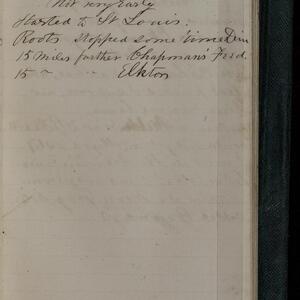 Not very Early
Started to St Louis.
Roots stopped some time
15 Miles farther Chapman's Feed.
15 " " Elkton